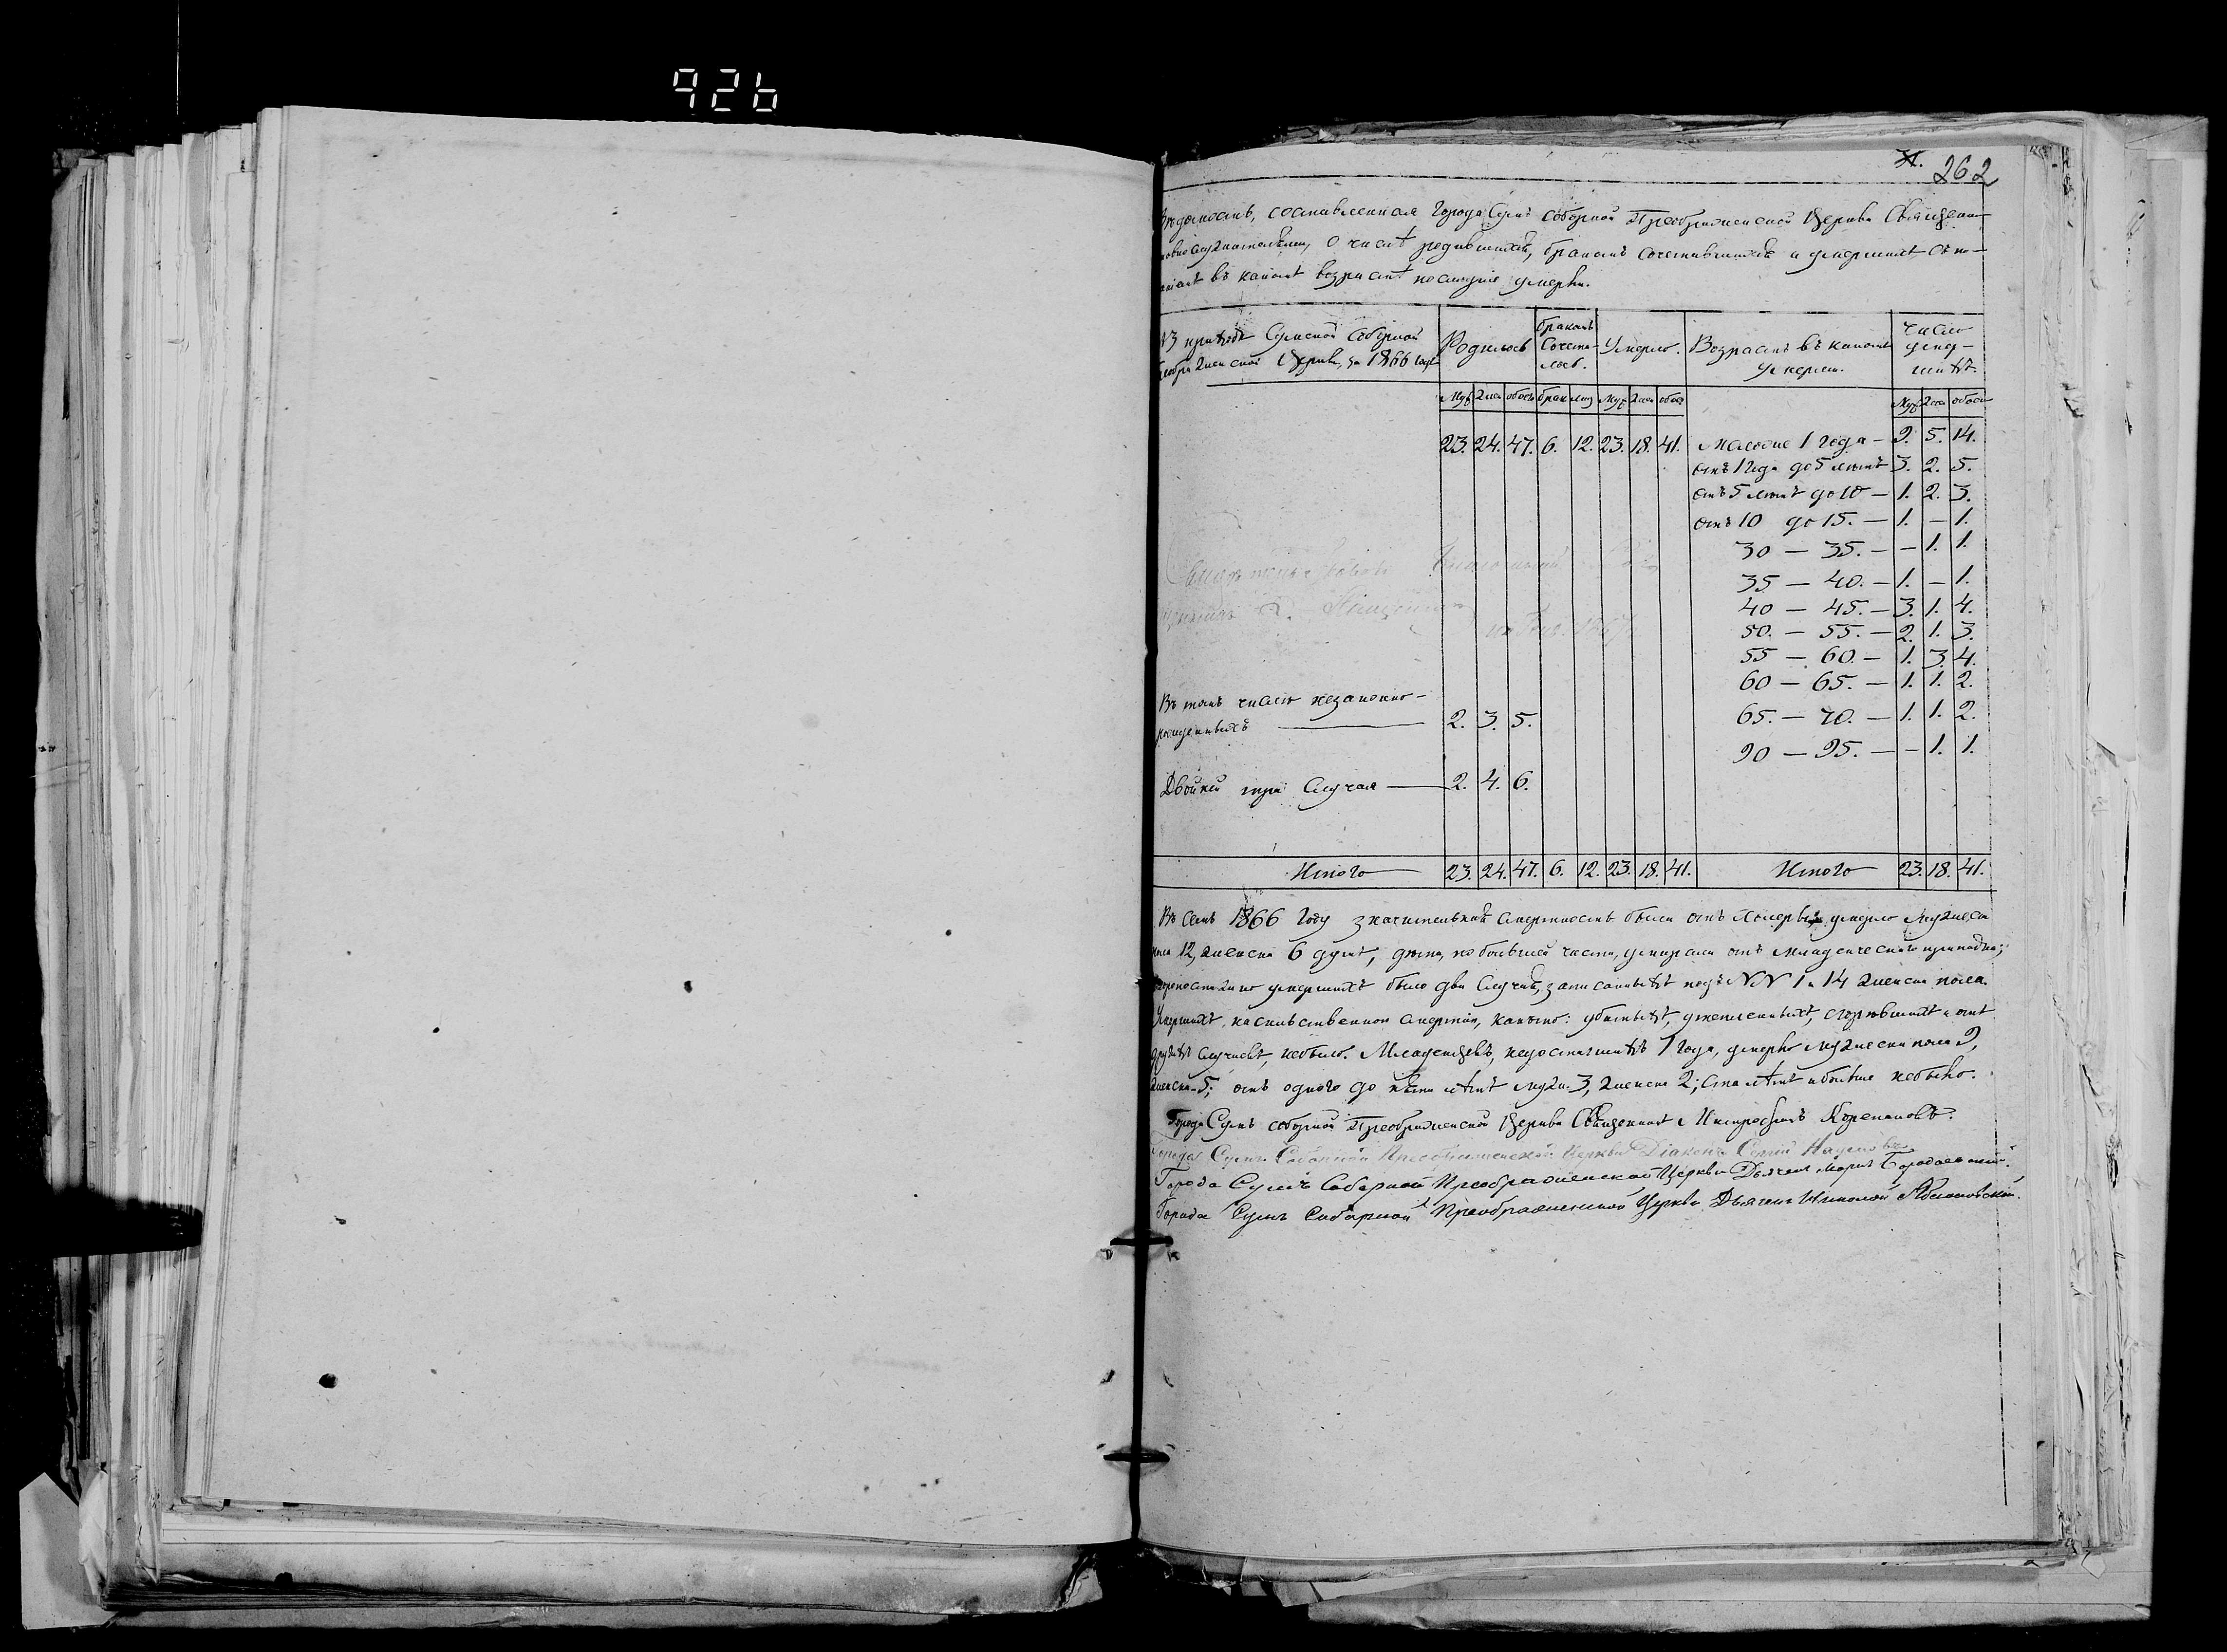 926
262
Вѣдомость, составленная Города Сумъ соборной Преображенской Церкви Священно-
о числѣ родившихся, бракомъ сочетавшихся и умершихъ съ по-
въ какомъ возрастѣ послѣдніе умерли.
приходѣ Сумской Соборной
Церкви, за 1866 годъ
Родилось
бракомъ
сочета-
лось.
Умерло.
Возрастъ въ какомъ
умерли.
число
умер-
шихъ.
Муж Жен обоего брак лиц Муж Жен обоего Муж Жен обоего
23. 24. 47. 6. 12. 23. 18. 41. Моложе 1 года — 9. 5. 14.
отъ 1 года до 5 лѣтъ 3. 2. 5.
отъ 5 лѣтъ до 10 — 1. 2. 3.
отъ 10 до 15. — 1. — 1.
30 — 35. — — 1. 1.
35 — 40. — 1. — 1.
40 — 45. — 3. 1. 4.
50. — 55. — 2. 1. 3.
55 — 60. — 1. 3. 4.
60 — 65. — 1. 1. 2.
65. — 70. — 1. 1. 2.
90 — 95. — — 1. 1.
Въ томъ числѣ незаконно-
рожденныхъ — 2. 3. 5.
Двойни три случая — 2. 4. 6.
Итого 23. 24. 47. 6. 12. 23. 18. 41. Итого 23. 18. 41.
Въ семъ 1866 году значительная смертность была отъ холеры умерло мужеска
пола 12, женска 6 душъ, дѣти, по большей части, умирали отъ младенческаго припадка;
умершихъ было два случая, записанныхъ подъ NN 1 и 14 женска пола.
Умершихъ насильственною смертію, какъ-то: убитыхъ, утопленныхъ, сгорѣвшихъ и отъ
другихъ случаевъ, небыло. Младенцевъ, недостигшихъ 1 года, умерло мужеска пола 9,
женска 5; отъ одного до пяти лѣтъ муж. 3, женска 2; ста лѣтъ и больше небыло.
Города Сумъ соборной Преображенской Церкви Священникъ Митрофанъ
Города Сумъ Соборной Преображенской Церкви Діаконъ Сергій Наумовъ
Города Сумъ Соборной Преображенской Церкви Дьячекъ
Города Сумъ Соборной Преображенской Церкви Дьячекъ Николай